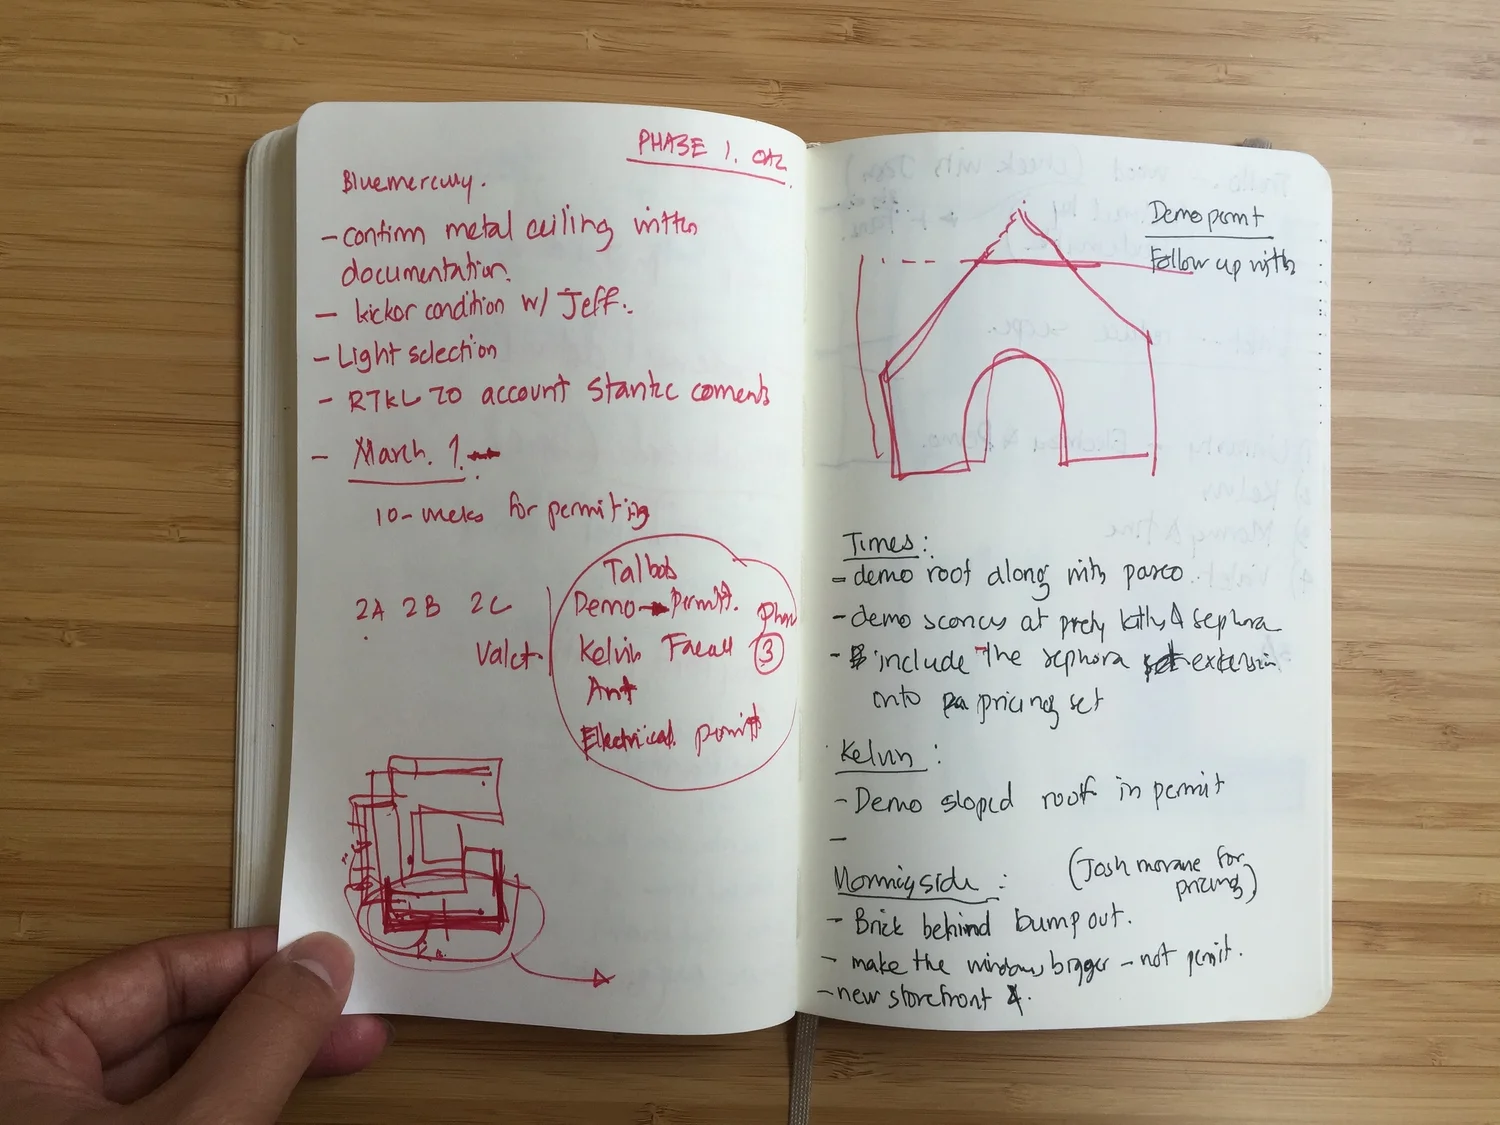 PHASE 1. OAC
Bluemercury.
- confirm metal ceiling with
documentation.
- kicker condition w/ Jeff.
- Light selection
- RTKL TO account Stantec coments
- March. 1.
10-weeks for permitting
Talbots
2A 2B 2C
Demo Permit.
Valet.
Kelvin
3
Ant
Electrical permit
Demo permit
Follow up with
Times:
- demo roof along with
- demo sconces at sephora
- include the sephora extension
onto pricing set
Kelvin:
- Demo sloped roof in permit
-
Morningside:
(Josh for
pricing)
- Brick behind bump out.
- make the windows bigger - not permit.
- new storefront